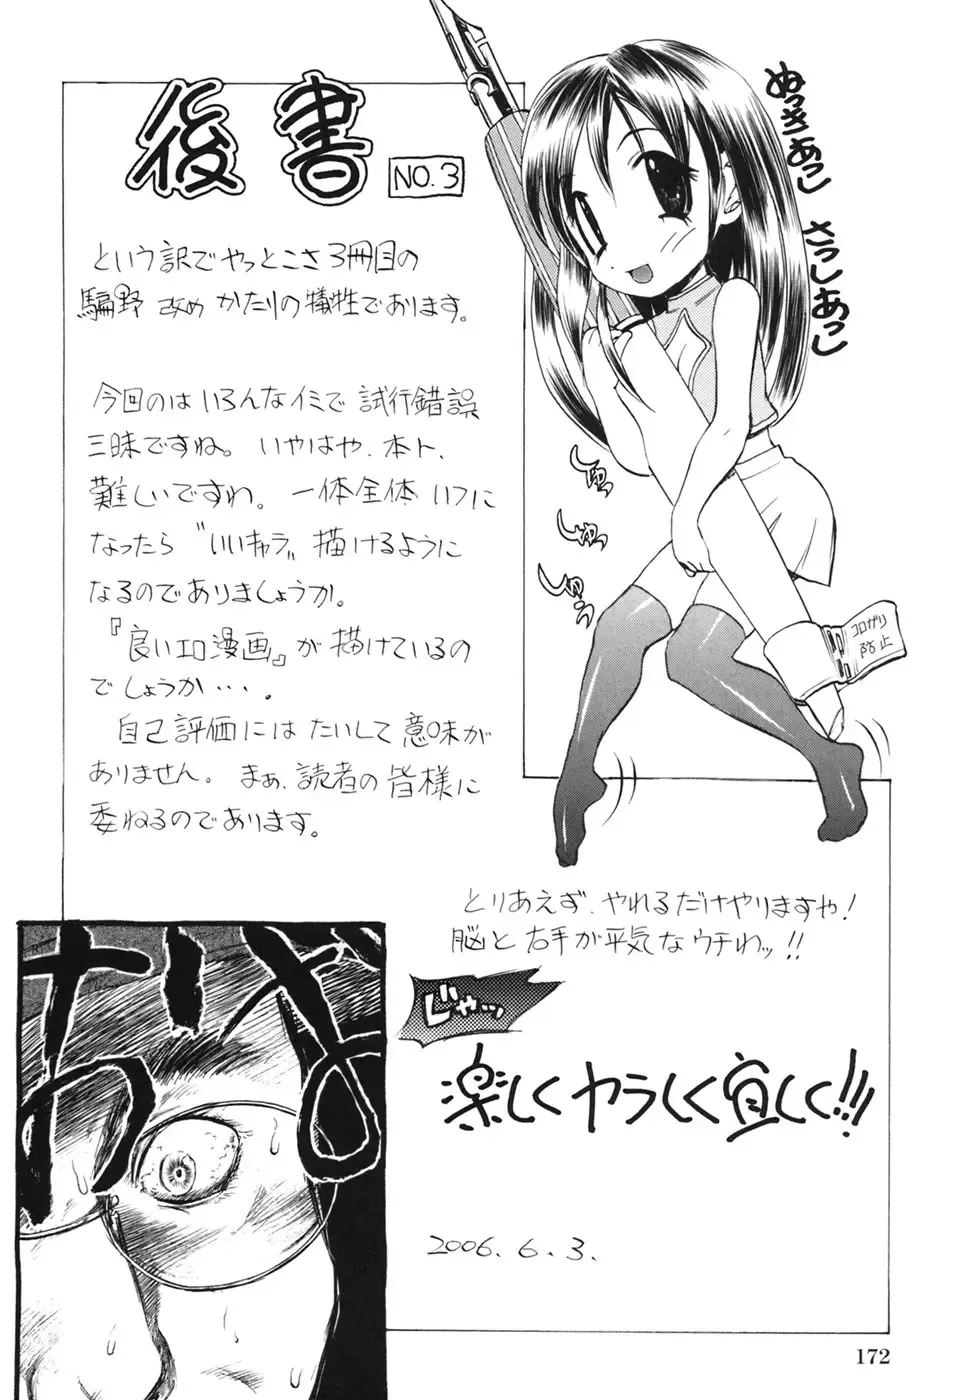 後書
NO.3
という訳でやっとこさ3冊目の
騙野 改め かたりの犠牲であります。
今回のは いろんなイミで 試行錯誤
三昧ですね。いやはや、本ト、
難しいですわ。一体全体 いつに
なったら〝いいキャラ〟描けるように
なるのでありましょうか。
『良いエロ漫画』が 描けているの
でしょうか・・・。
自己評価には たいして 意味が
ありません。まぁ、読者の皆様に
委ねるのであります。
ぬっきあっし
さっしあっし
しゅっ
しゅっ
しゅぅ
コロガリ
防止
とりあえず、やれるだけやりますや!
脳と 右手が平気なウチわッ!!
じゃっ
楽しくヤラしく宜しく!!!
2006.6.3.
172